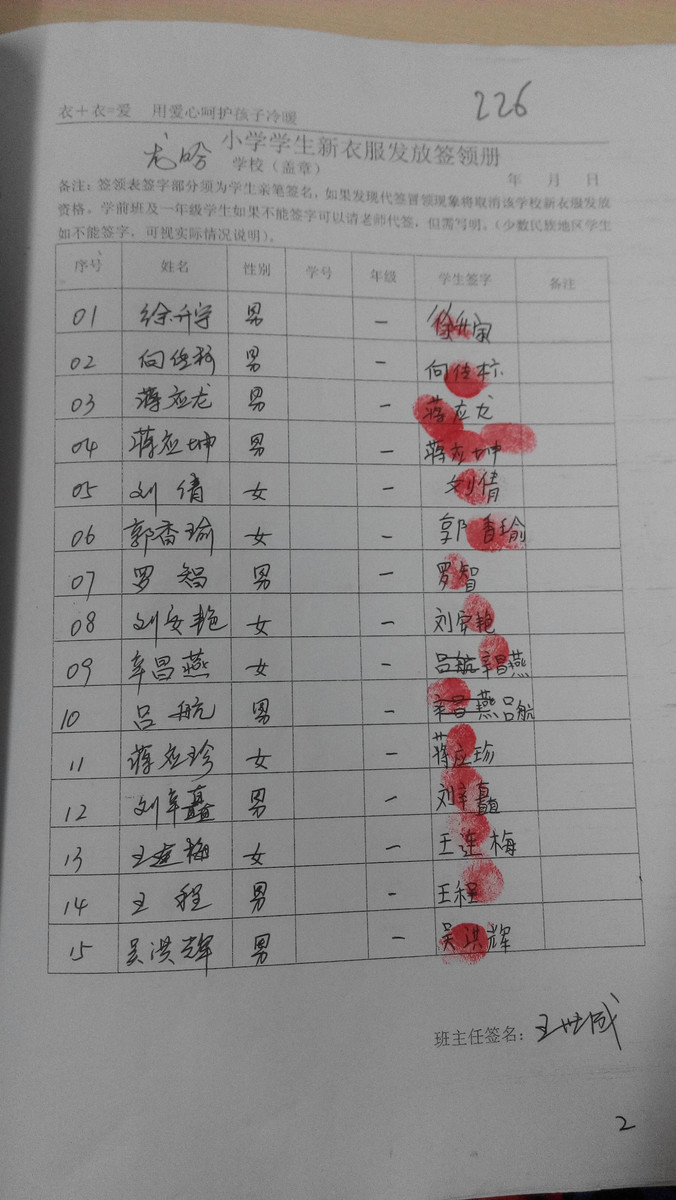 226
衣+衣=爱 用爱心呵护孩子冷暖
小学学生新衣服发放签领册
龙哈 学校（盖章） 年 月 日
备注：签领表签字部分须为学生亲笔签名，如果发现代签冒领现象将取消该学校新衣服发放
资格。学前班及一年级学生如果不能签字可以请老师代签，但需写明。（少数民族地区学生
如不能签字，可视实际情况说明）。
序号 姓名 性别 学号 年级 学生签字 备注
01 徐升宇 男 一 徐升宇
02 向佳标 男 一 向佳标
03 蒋应龙 男 一 蒋应龙
04 蒋应坤 男 一 蒋应坤
05 刘倩 女 一 刘倩
06 郭香瑜 女 一 郭香瑜
07 罗智 男 一 罗智
08 刘安艳 女 一 刘安艳
09 辛昌燕 女 一 吕航辛昌燕
10 吕航 男 一 辛昌燕吕航
11 蒋应珍 女 一 蒋应珍
12 刘辛矗 男 一 刘辛矗
13 王连梅 女 一 王连梅
14 王程 男 一 王程
15 吴洪辉 男 一 吴洪辉
班主任签名：王世成
2